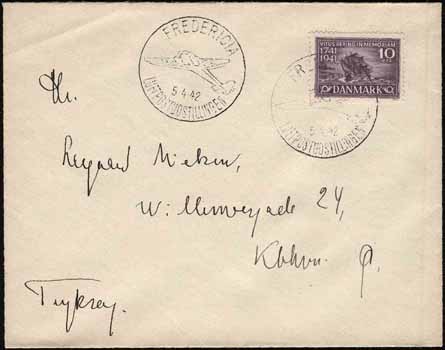 FREDERICIA
5.4.42
LUFTPOSTUDSTILLINGEN
VITUS BERING IN MEMORIAM
1741
1941
10
DANMARK
FR
5.4.42
LUFTPOSTUDSTILLINGEN
Hr.
Nielsen,
Willemoesgade 24,
Kbhvn. Ø.
Tryksag.